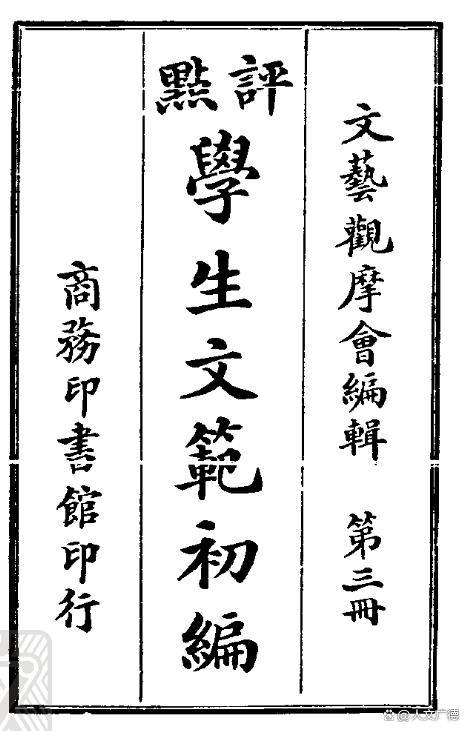 文藝觀摩會編輯 第三冊
評點
學生文範初編
商務印書館印行
@人文广德